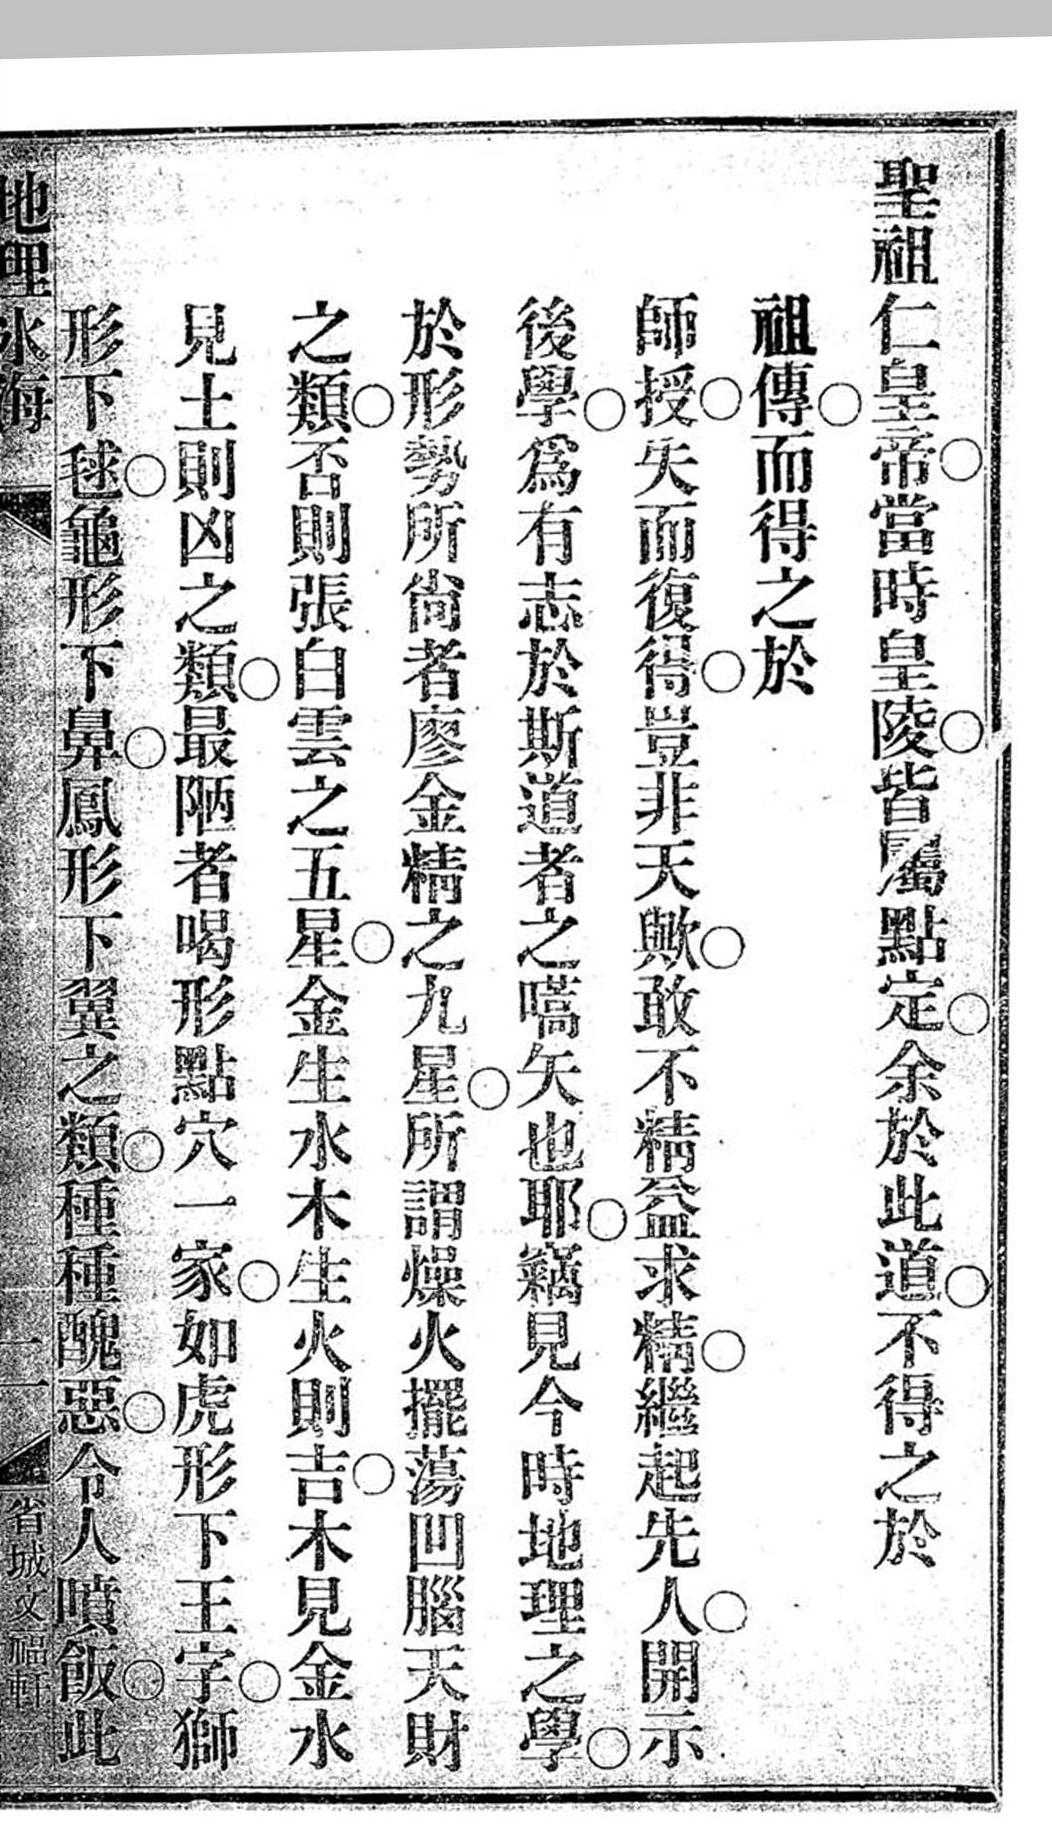 聖祖仁皇帝當時皇陵皆屬點定余於此道不得之於
祖傳而得之於
師授失而復得豈非天歟敢不精益求精繼起先人開示
後學爲有志於斯道者之嚆矢也耶竊見今時地理之學
於形勢所尙者廖金精之九星所謂燥火擺蕩凹腦天財
之類否則張白雲之五星金生水木生火則吉木見金水
見土則凶之類最陋者喝形點穴一家如虎形下王字獅
形下毬龜形下鼻鳳形下翼之類種種醜惡令人噴飯此
地理水海
二一
省城文福軒